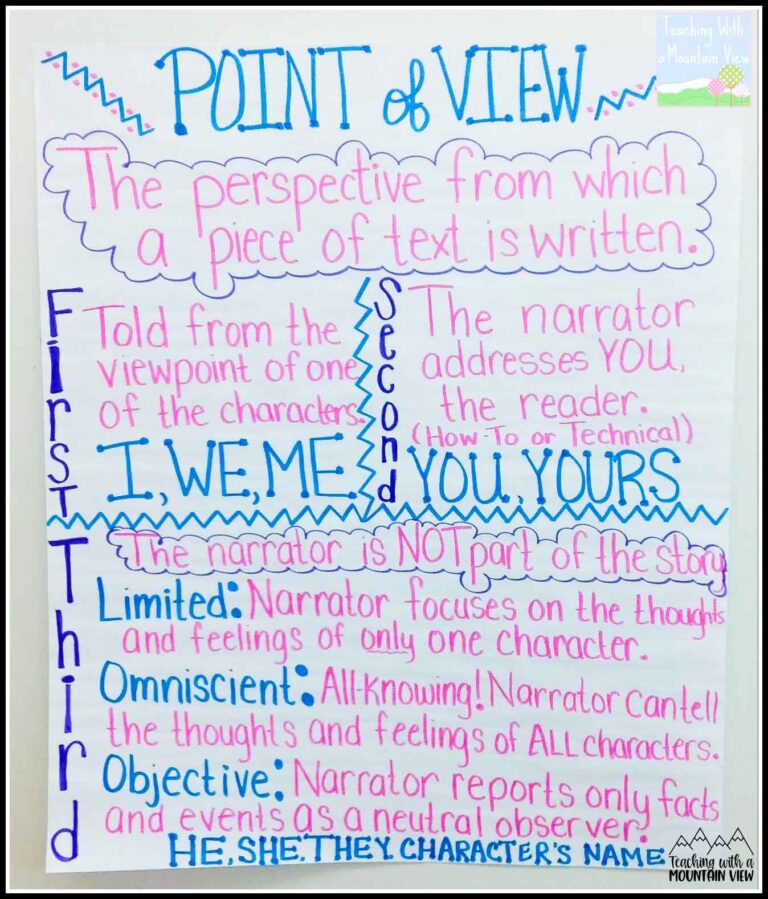 Teaching With
a Mountain View
POINT of VIEW
The perspective from which
a piece of text is written.
First
Told from the
viewpoint of one
of the characters.
I, WE, ME
Second
The narrator
addresses YOU,
the reader.
(How-To or Technical)
YOU, YOURS
Third
The narrator is NOT part of the story
Limited: Narrator focuses on the thoughts
and feelings of only one character.
Omniscient: All-Knowing! Narrator can tell
the thoughts and feelings of ALL characters.
Objective: Narrator reports only facts
and events as a neutral observer.
HE, SHE, THEY, CHARACTER'S NAME
Teaching with a
MOUNTAIN VIEW